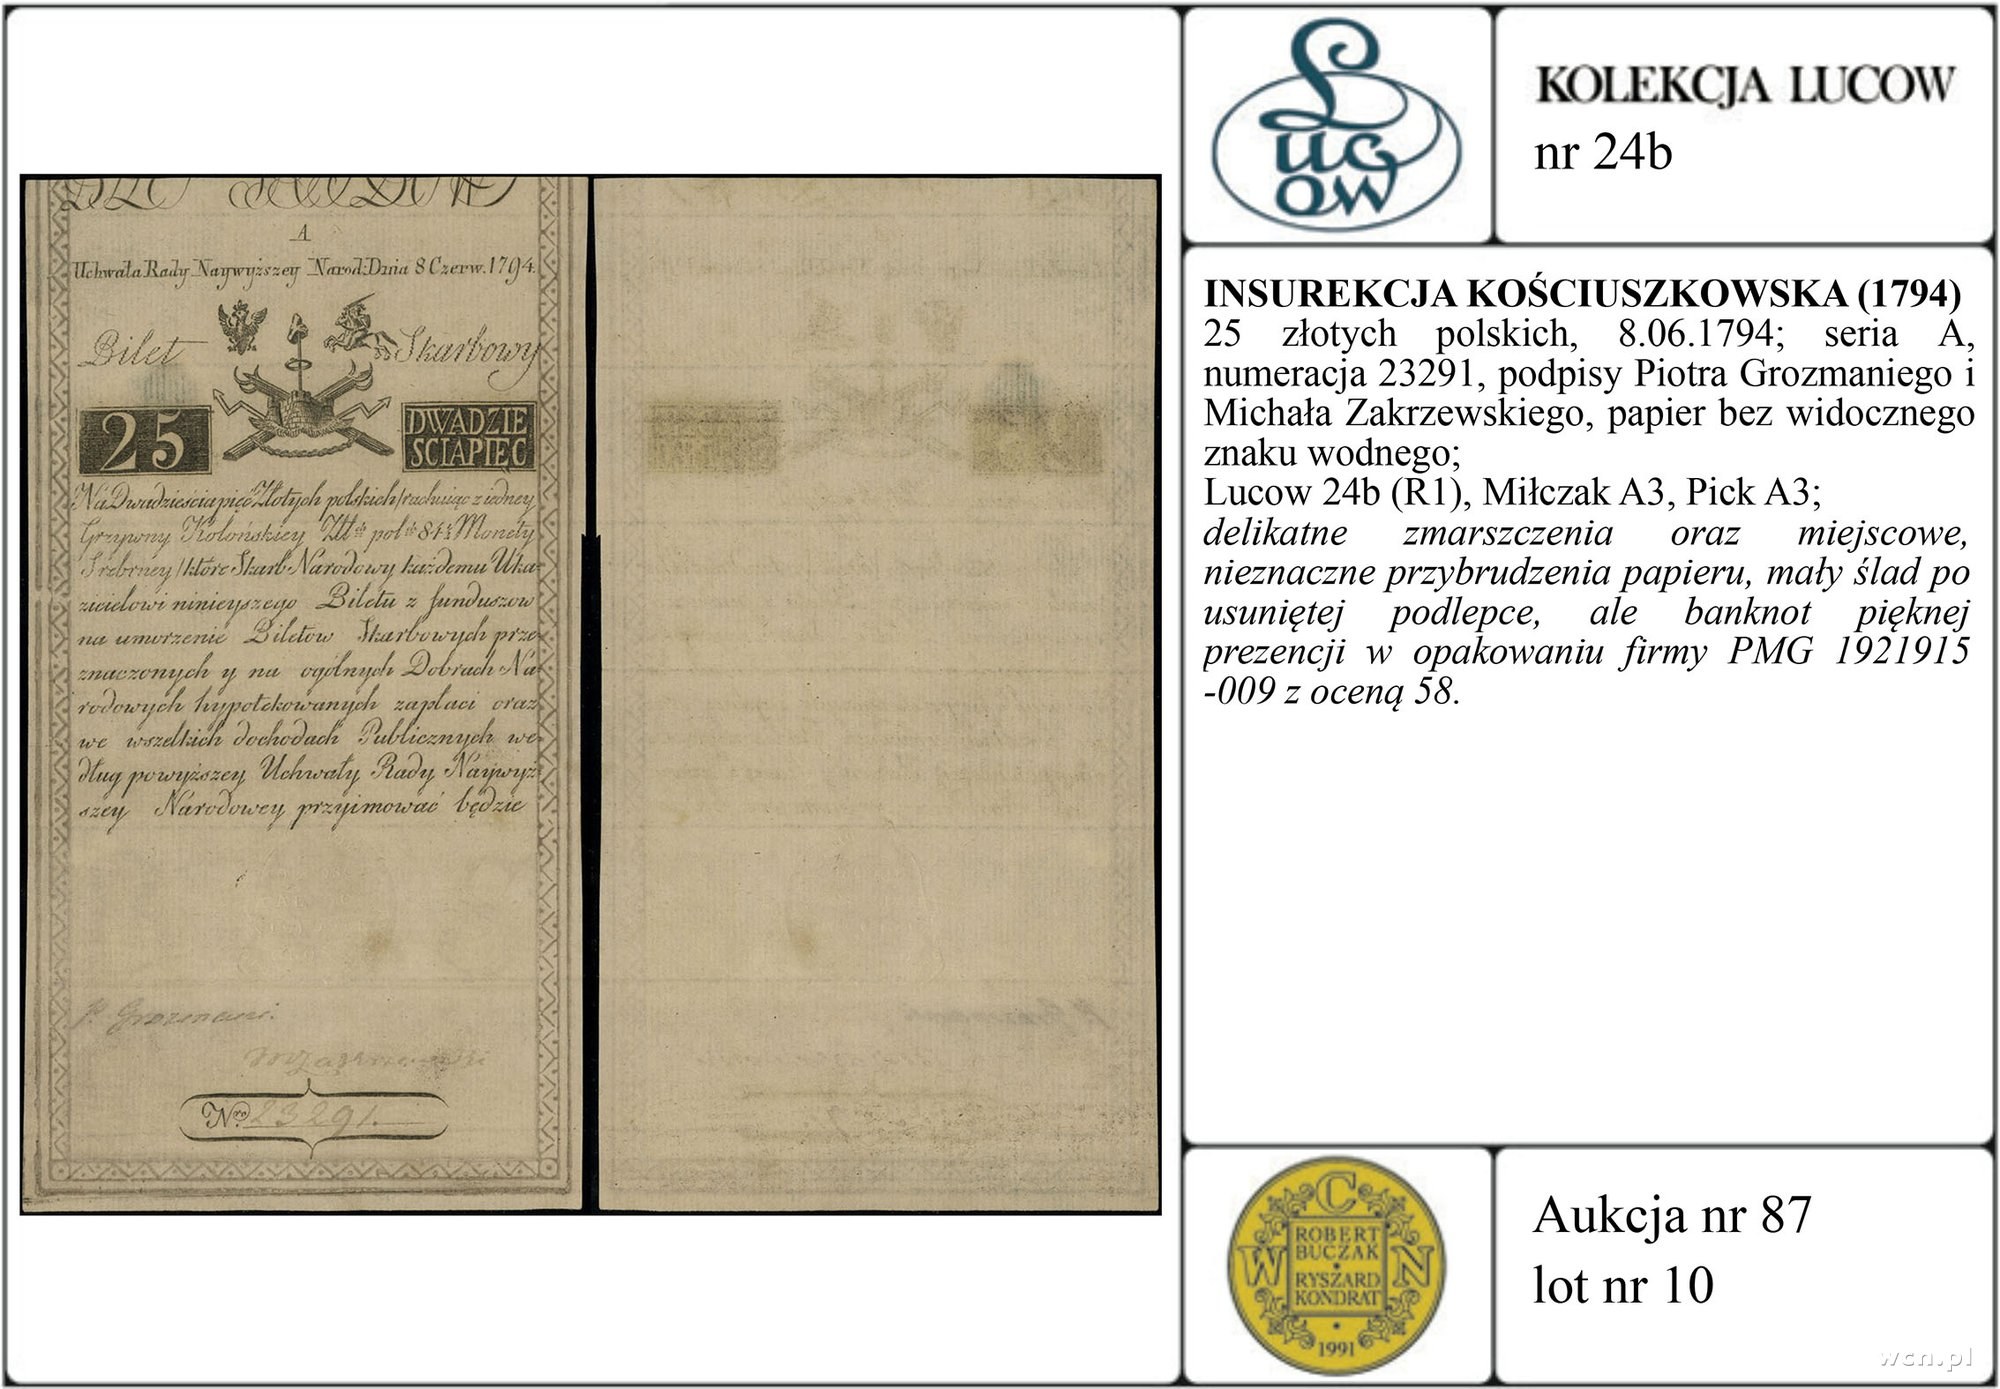 A
Uchwała Rady Naywyższey Narod: Dnia 8 Czerw. 1794.
Bilet Skarbowy
25
DWADZIE
SCIAPIĘC
Na Dwadzieścia pięć Złotych polskich / rachuiąc z iedney
Grzywny Kolońskiey Złł pol 84 ½ Monety
Srebrney / które Skarb Narodowy każdemu Uka-
zicielowi ninieyszego Biletu z funduszow
na umorzenie Biletow Skarbowych prze-
znaczonych y na ogólnych Dobrach Na-
rodowych hypotekowanych zapłaci oraz
we wszelkich dochodach Publicznych we-
dług powyższey Uchwały Rady Naywyż
szey Narodowey przyimować będzie
P. Grozmani.
MZakrzewski
Nro 23291.
Lucow
KOLEKCJA LUCOW
nr 24b
INSUREKCJA KOŚCIUSZKOWSKA (1794)
25 złotych polskich, 8.06.1794; seria A,
numeracja 23291, podpisy Piotra Grozmaniego i
Michała Zakrzewskiego, papier bez widocznego
znaku wodnego;
Lucow 24b (R1), Miłczak A3, Pick A3;
delikatne zmarszczenia oraz miejscowe,
nieznaczne przybrudzenia papieru, mały ślad po
usuniętej podlepce, ale banknot pięknej
prezencji w opakowaniu firmy PMG 1921915
-009 z oceną 58.
W C N
ROBERT
BUCZAK
RYSZARD
KONDRAT
1991
Aukcja nr 87
lot nr 10
wcn.pl